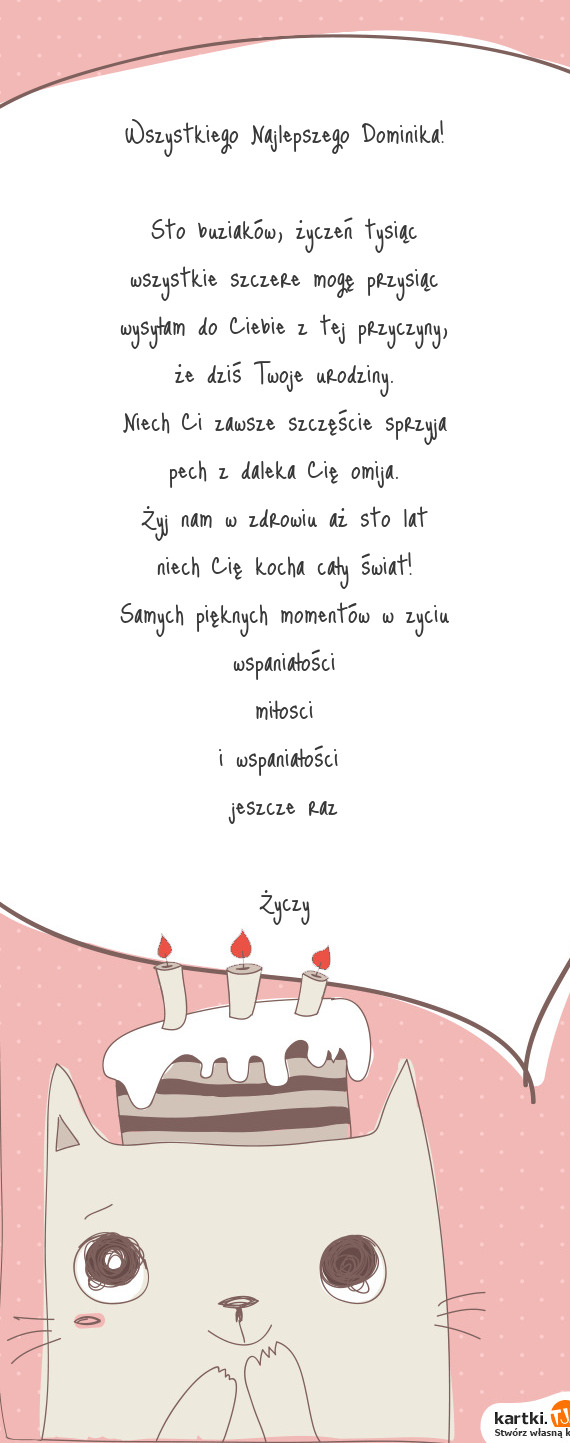 Wszystkiego Najlepszego Dominika!
Sto buziaków, życzeń tysiąc
wszystkie szczere mogę przysiąc
wysyłam do Ciebie z tej przyczyny,
że dziś Twoje urodziny.
Niech Ci zawsze szczęście sprzyja
pech z daleka Cię omija.
Żyj nam w zdrowiu aż sto lat
niech Cię kocha cały świat!
Samych pięknych momentów w zyciu
wspaniałości
miłosci
i wspaniałości
jeszcze raz
Życzy
kartki.TJ
Stwórz własną k